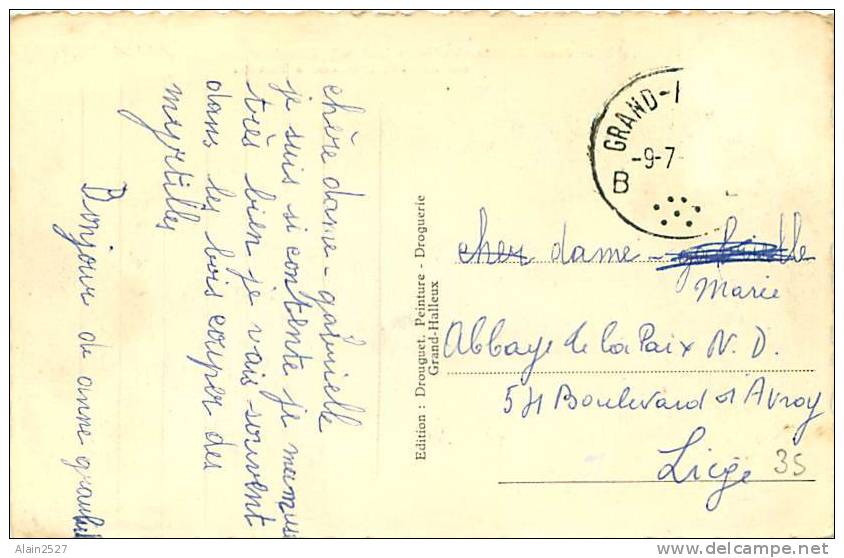 chère dame - gabrielle
je suis si contente je mamuse
très bien je vais souvent
dans les bois couper des
myrtilles
Bonjour de anne
Edition : Drouguet, Peinture - Droguerie
Grand-Halleux
GRAND-
-9-7
B
cher dame - gabrielle
Marie
Abbaye de la Paix N. D.
54 Boulevard d'Avroy
Liége
35
Alain2527
http://www.delcampe.net